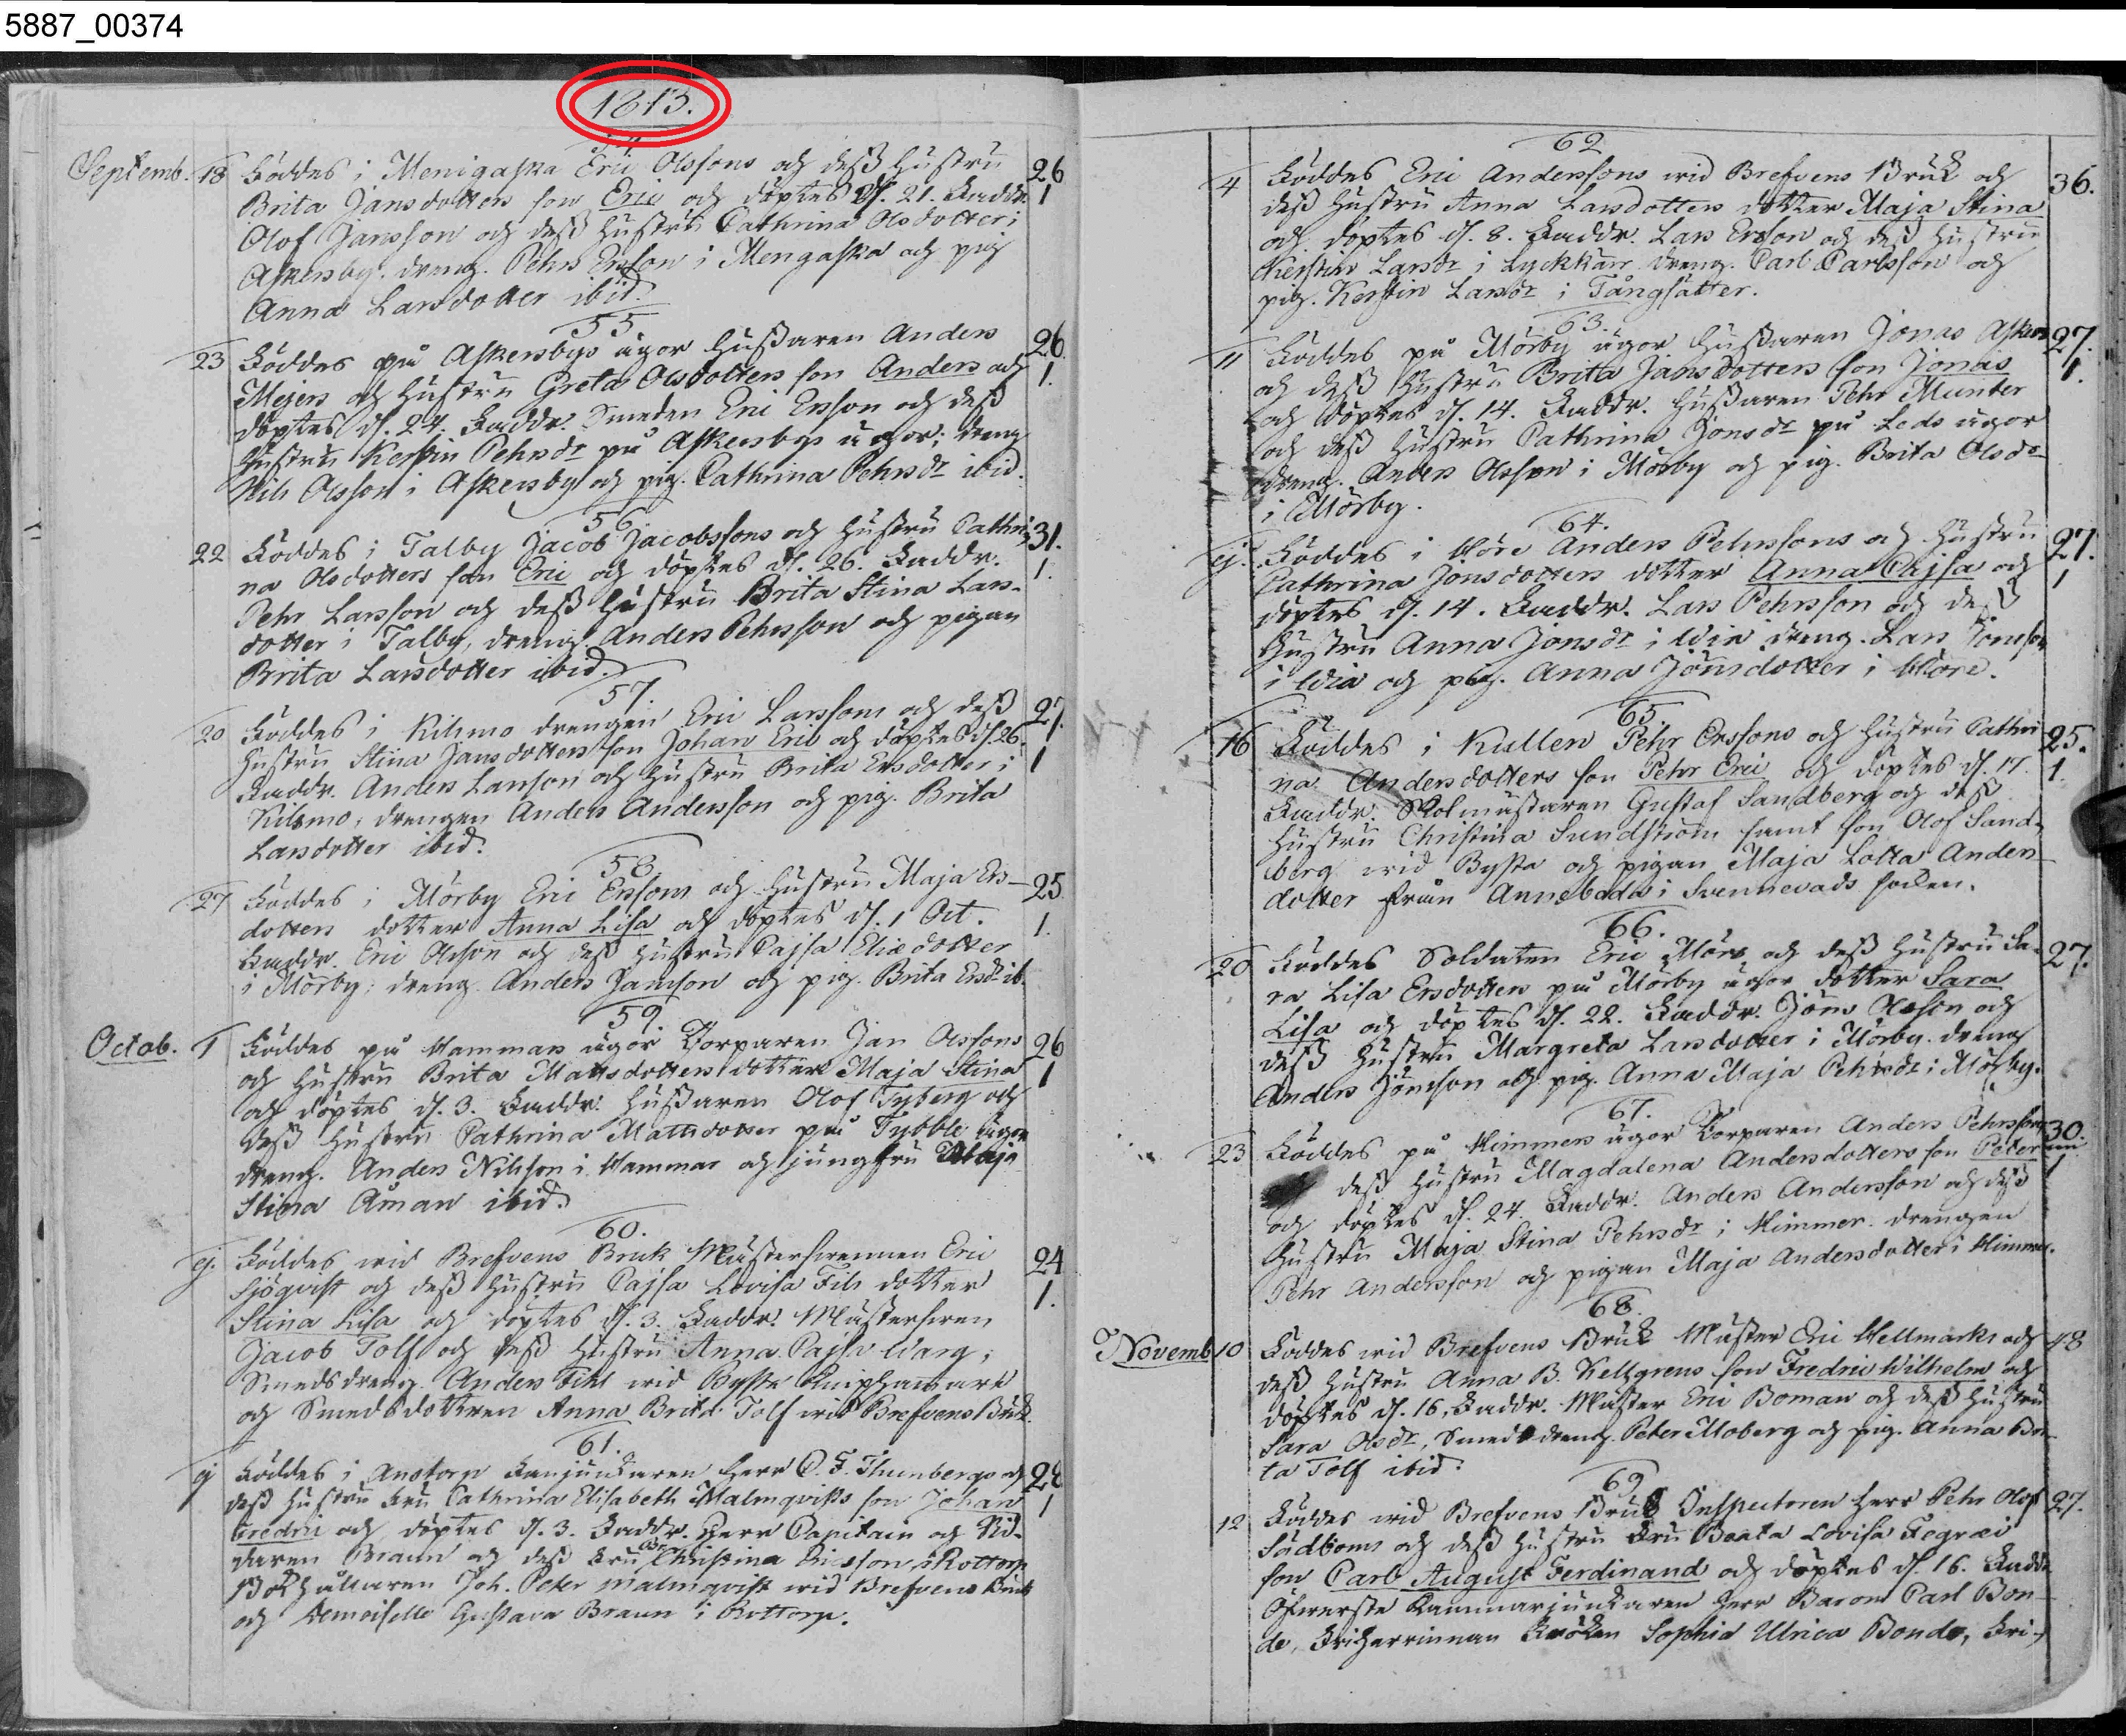 5887_00374
1813.
54
Septemb. 18 Föddes i Menigaska Eric Olssons och dess Hustru 26
Brita Jansdotters son Eric och döptes d. 21. Faddr. 1
Olof Jansson och dess Hustru Cathrina Olsdotter i
Askersby. dreng. Pehr Ersson i Mengaska och pig
Anna Larsdotter ibid.
55.
23 Föddes på Askersbys ägor Hussaren Anders 26.
Mejers och Hustru Greta Olsdotters son Anders och 1.
döptes d. 24. Faddr. Smeden Eric Ersson och dess
Hustru Kerstin Pehrsdr på Askersbys ägor; dreng
Nils Olsson i Askersby och pig. Cathrina Pehrsdr ibid.
56
22 Föddes i Talby Jacob Jacobssons och Hustru Cathri- 31.
na Olsdotters son Eric och döptes d. 26. Faddr. 1.
Pehr Larsson och dess Hustru Brita Stina Lars-
dotter i Talby, dreng. Anders Pehrsson och pigan
Brita Larsdotter ibid.
57.
20 Föddes i Kilsmo drengen Eric Larssons och dess 27.
Hustru Stina Jansdotters son Johan Eric och döptes d. 26. 1
Faddr. Anders Larsson och Hustru Brita Ersdotter i
Kilsmo, drengen Anders Andersson och pig. Brita
Larsdotter ibid.
58
27 Föddes i Mörby Eric Erssons och Hustru Maja Ers- 25
dotters dotter Anna Lisa och döptes d. 1 Oct. 1.
Faddr. Eric Olsson och dess Hustru Cajsa Elisdotter
i Mörby; dreng. Anders Jansson och pig. Brita Ersdr ib.
59.
Octob. 1 Föddes på Hammars ägor Torparen Jan Olssons 26
och Hustru Brita Mattsdotters dotter Maja Stina 1
och döptes d. 3. Faddr. Hussaren Olof Tyberg och
dess Hustru Cathrina Mattsdotter på Tybble ägor
dreng. Anders Nilsson i Hammar och jungfru Maja
Stina Åman ibid.
60.
ej. Föddes wid Brefvens Bruk Mästersvennen Eric 24
Sjöqvist och dess Hustru Cajsa Lovisa Fils dotter 1.
Stina Lisa och döptes d. 3. Faddr. Mästersven
Jacob Tolf och dess Hustru Anna Cajsa Warg;
Smedsdreng. Anders Fihl wid Bysta Knipphammare
och Smedsdottren Anna Brita Tolf wid Brefvens Bruk.
61.
ej Föddes i Anstorp Fanjunkaren Herr C. F. Thunbergs och 28
dess Hustru Fru Cathrina Elisabeth Malmqvists son Johan 1
Fredric och döptes d. 3. Faddr. Herr Capitain och Rid-
daren Braun och dess Fru Christina Ericsson i Rottorp
Bokhållaren Joh. Peter Malmqvist wid Brefvens Bruk
och Demoiselle Gustava Braun i Rottorp.
62
4 Föddes Eric Anderssons wid Brefvens Bruk och 36.
dess Hustru Anna Larsdotters dotter Maja Stina
och döptes d. 8. Faddr. Lars Ersson och dess Hustru
Kerstin Larsdr i Lyckkärr dreng. Carl Carlsson och
pig. Kerstin Larsdr i Tångsätter.
63.
11 Föddes på Mörby ägor Hussaren Jonas Askers 27.
och dess Hustru Brita Jansdotters son Jonas 1.
och döptes d. 14. Faddr. Hussaren Pehr Munter
och dess Hustru Cathrina Jonsdr på Leds ägor
dreng. Anders Olsson i Mörby och pig. Brita Olsdr
i Mörby.
64.
ej. Föddes i Höre Anders Pehrssons och Hustru 27.
Cathrina Jönsdotters dotter Anna Cajsa och 1
döptes d. 14. Faddr. Lars Pehrsson och dess
Hustru Anna Jönsdr i Wia dreng. Lars Jönsson
i Wia och pig. Anna Jönsdotter i Höre.
65.
16 Föddes i Kullen Pehr Erssons och Hustru Cathri 25.
na Andersdotters son Pehr Eric och döptes d. 17. 1.
Faddr. Skolmästaren Gustaf Sandberg och dess
Hustru Christina Sundström samt son Olof Sand-
berg wid Bysta och pigan Maja Lotta Anders-
dotter från Anneboda i Svennevads socken.
66.
20 Föddes Soldaten Eric Mörs och dess Hustru Sa- 27.
ra Lisa Ersdotters på Mörby ägor dotter Sara
Lisa och döptes d. 22. Faddr. Jöns Olsson och
dess Hustru Margreta Larsdotter i Mörby. dreng
Anders Jönsson och pig. Anna Maja Pehrsdr i Mörby.
67.
23 Föddes på Himmers ägor Torparen Anders Pehrssons 30.
dess Hustru Magdalena Andersdotters son Peter 1
och döptes d. 24. Faddr. Anders Andersson och dess
Hustru Maja Stina Pehrsdr i Himmer. drengen
Pehr Andersson och pigan Maja Andersdotter i Himmer.
68.
Novemb. 10 Föddes wid Brefvens Bruk Mäster Eric Hellmarks och 48
dess Hustru Anna B. Kellgrens son Fredric Wilhelm och
döptes d. 16. Faddr. Mäster Eric Boman och dess Hustru
Sara Olsdr, Smedsdreng. Peter Moberg och pig. Anna Bri-
ta Tolf ibid.
69
12 Föddes wid Brefvens Bruk Inspectoren Herr Pehr Olof 27.
Södboms och dess Hustru Fru Beata Lovisa Fegræi
son Carl August Ferdinand och döptes d. 16. Faddr.
Öfverste Kammarjunkaren Herr Baron Carl Bon-
de, Friherrinnan Fröken Sophia Ulrica Bonde, Fri-